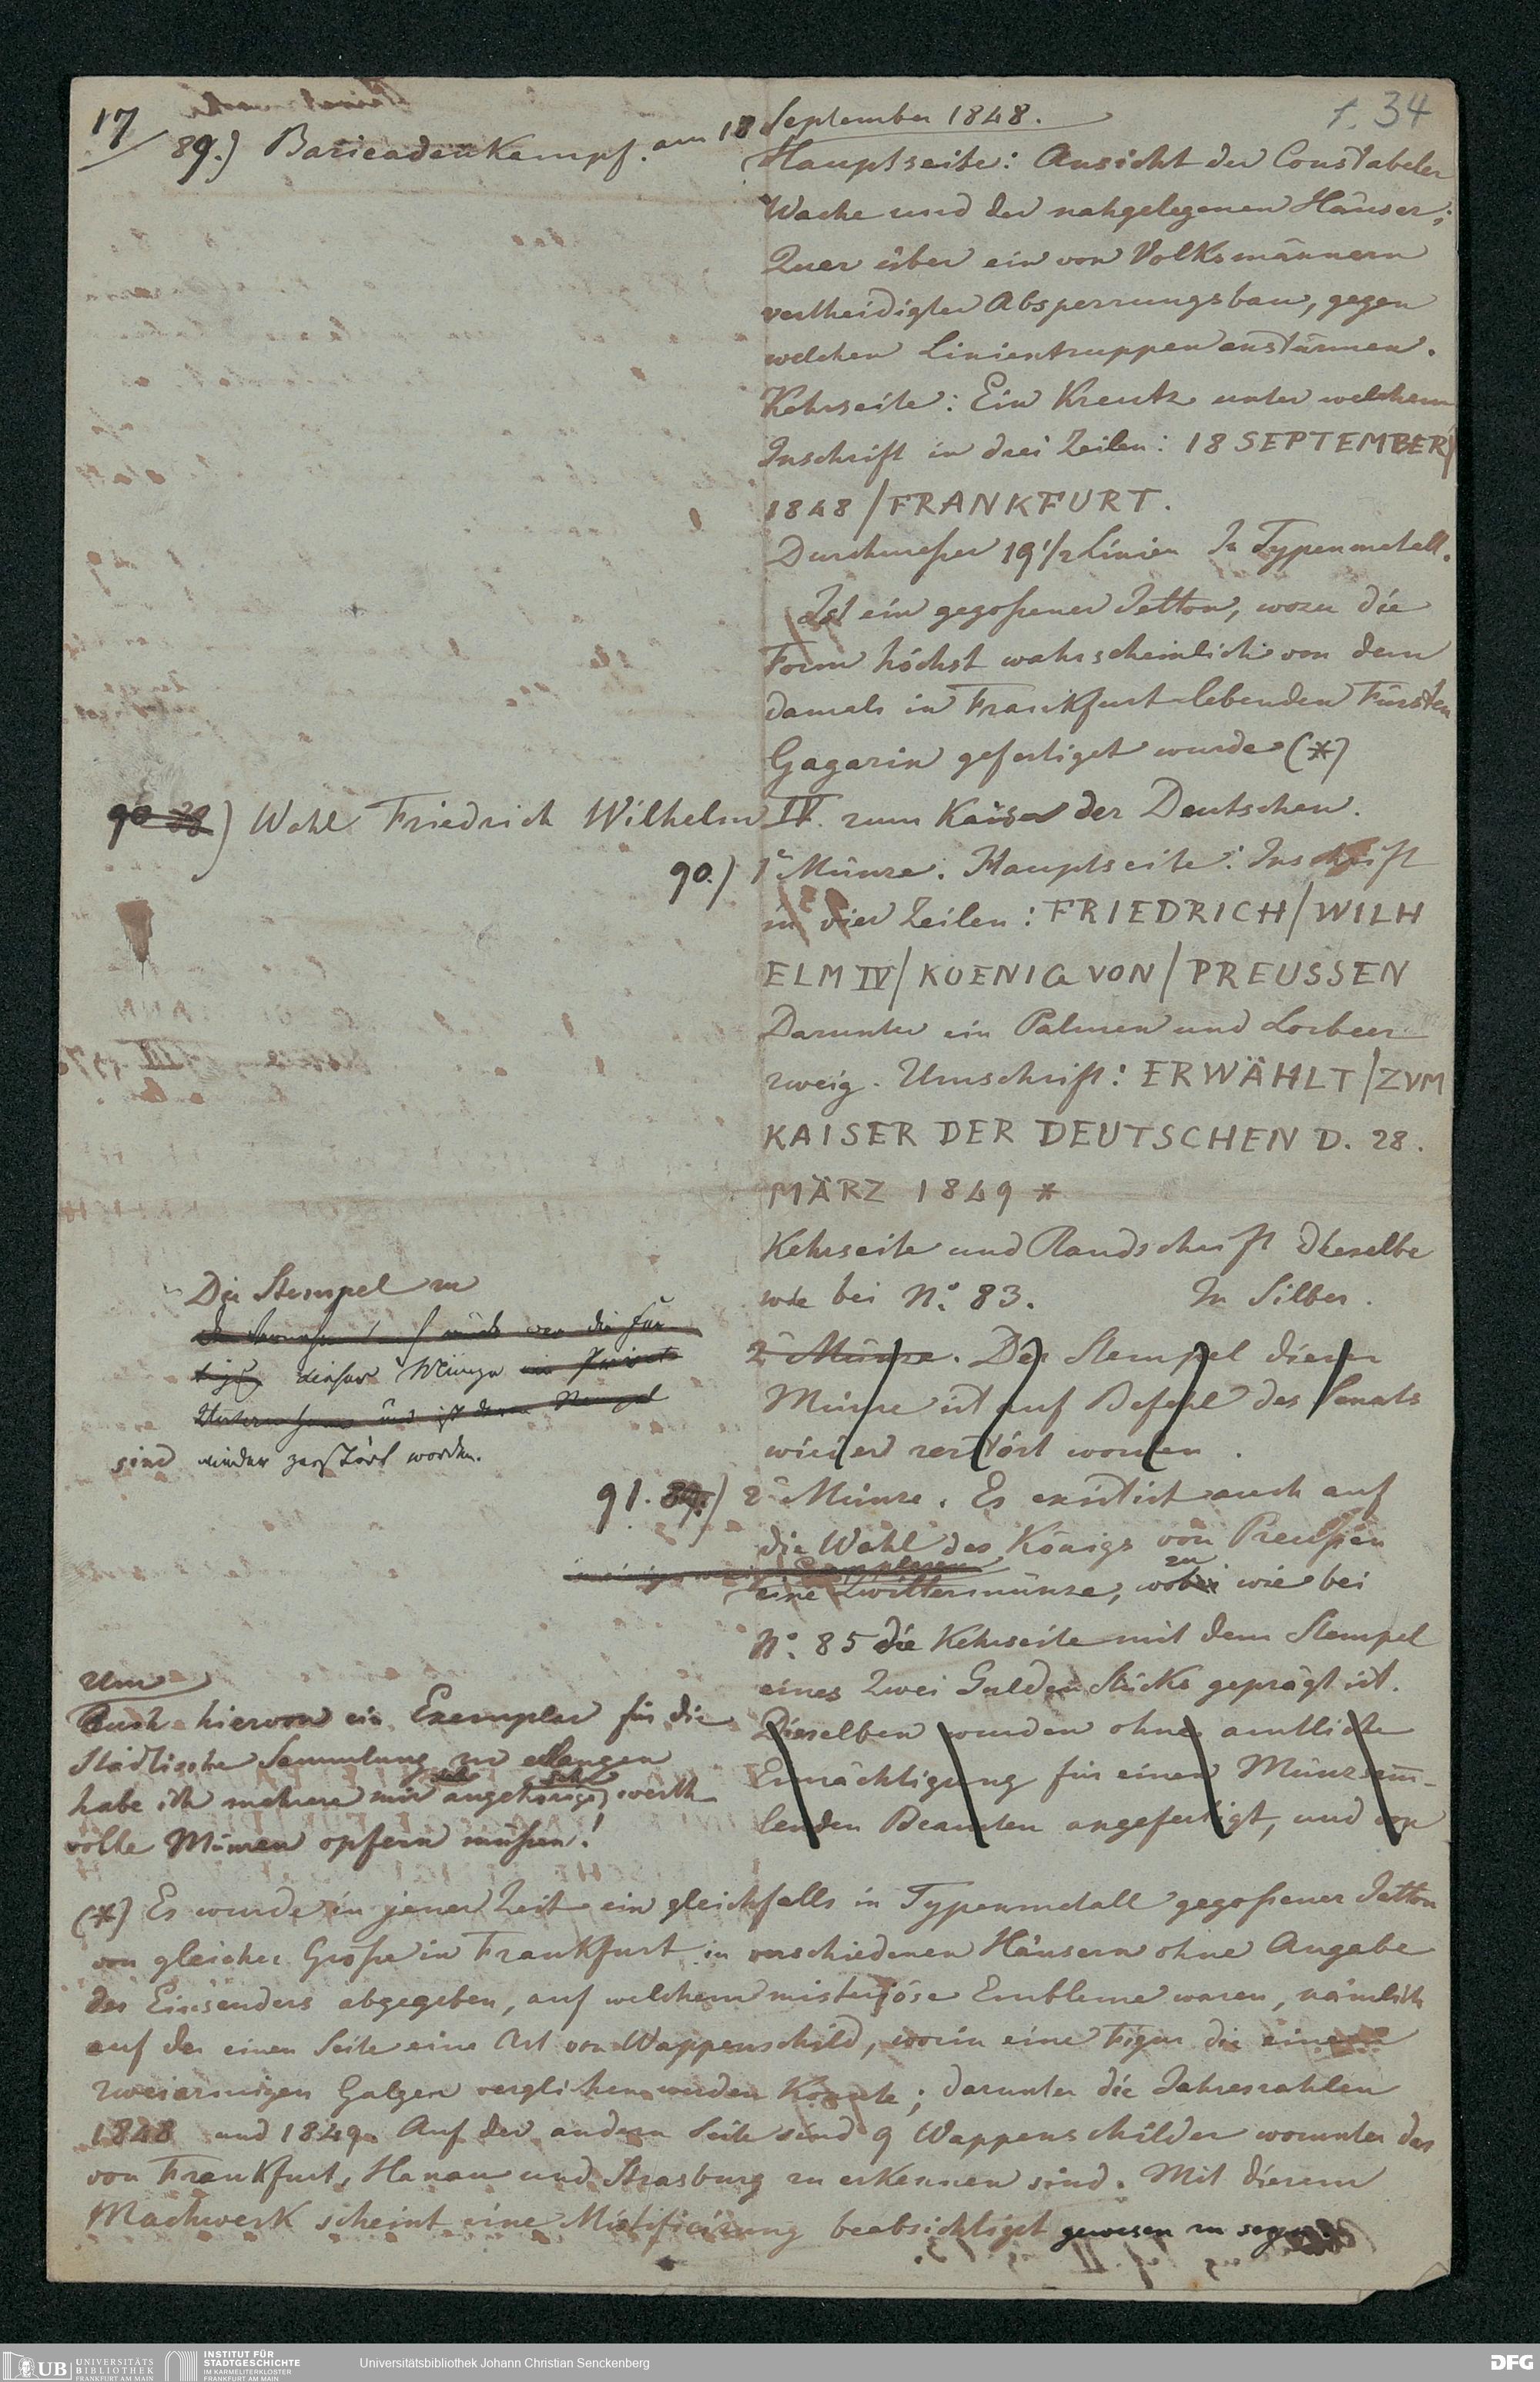 17
f. 34
89.) Baricadenkampf. am 18 September 1848.
Hauptseite: Ansicht der Constabeler
Wache und der nahgelegenen Häuser;
Quer über ein von Volksmännern
vertheidigter Absperrungsbau, gegen
welchen Linientruppen anstürmen.
Kehrseite: Ein Kreutz unter welchem
Inschrift in drei Zeilen: 18 SEPTEMBER/
1848/FRANKFURT.
Durchmeßer 19 1/2 Linien In Typenmetall.
Ist ein gegoßener Jetton, wozu die
Form höchst wahrscheinlich von dem
damals in Frankfurt lebenden Fürsten
Gagarin gefertiget wurde (*)
90 88) Wahl Friedrich Wilhelm IV. zum Kaiser der Deutschen.
90.) 1e Münze. Hauptseite: Inschrift
in vier Zeilen: FRIEDRICH/WILH
ELM IV/KOENIG VON/PREUSSEN
Darunter ein Palmen und Lorbeer
zweig. Umschrift: ERWÄHLT/ZVM
KAISER DER DEUTSCHEN D. 28.
MÄRZ 1849 *
Kehrseite und Randschrift dieselbe
wie bei No. 83. In Silber.
Die Stempel zu
dieser Münze
sind wieder zerstört worden.
2e Münze. Der Stempel dieser
Münze ist auf Befehl des Senats
wieder zerstört worden.
91. 89.) 2e Münze. Es existirt auch auf
die Wahl des Königs von Preußen
eine Zwittermünze, wozu wie bei
No. 85 die Kehrseite mit dem Stempel
eines Zwei Gulden Stücks geprägt ist.
Dieselben wurden ohne amtliche
Ermächtigung für einen Münzsam-
lenden Beamten angefertigt, und von
Um
Auch hiervon ein Exemplar für die
Städtische Sammlung zu erlangen
habe ich mehrere mir angehörige, werth
volle Münzen opfern müßen!
(*) Es wurde in jener Zeit ein gleichfalls in Typenmetall gegoßener Jetton
von gleicher Größe in Frankfurt in verschiedenen Häusern ohne Angabe
des Einsenders abgegeben, auf welchem misteriöse Embleme waren, nämlich
auf der einen Seite eine Art von Wappenschild, worin eine Figur die einem
zweiarmigen Galgen verglichen werden konnte; darunter die Jahreszahlen
1848 und 1849. Auf der andern Seite sind 9 Wappenschilder worunter das
von Frankfurt, Hanau und Strasburg zu erkennen sind. Mit diesem
Machwerk scheint eine Mistificirung beabsichtiget gewesen zu seyn.
UB UNIVERSITÄTS
BIBLIOTHEK
FRANKFURT AM MAIN
INSTITUT FÜR
STADTGESCHICHTE
IM KARMELITERKLOSTER
FRANKFURT AM MAIN
Universitätsbibliothek Johann Christian Senckenberg
DFG